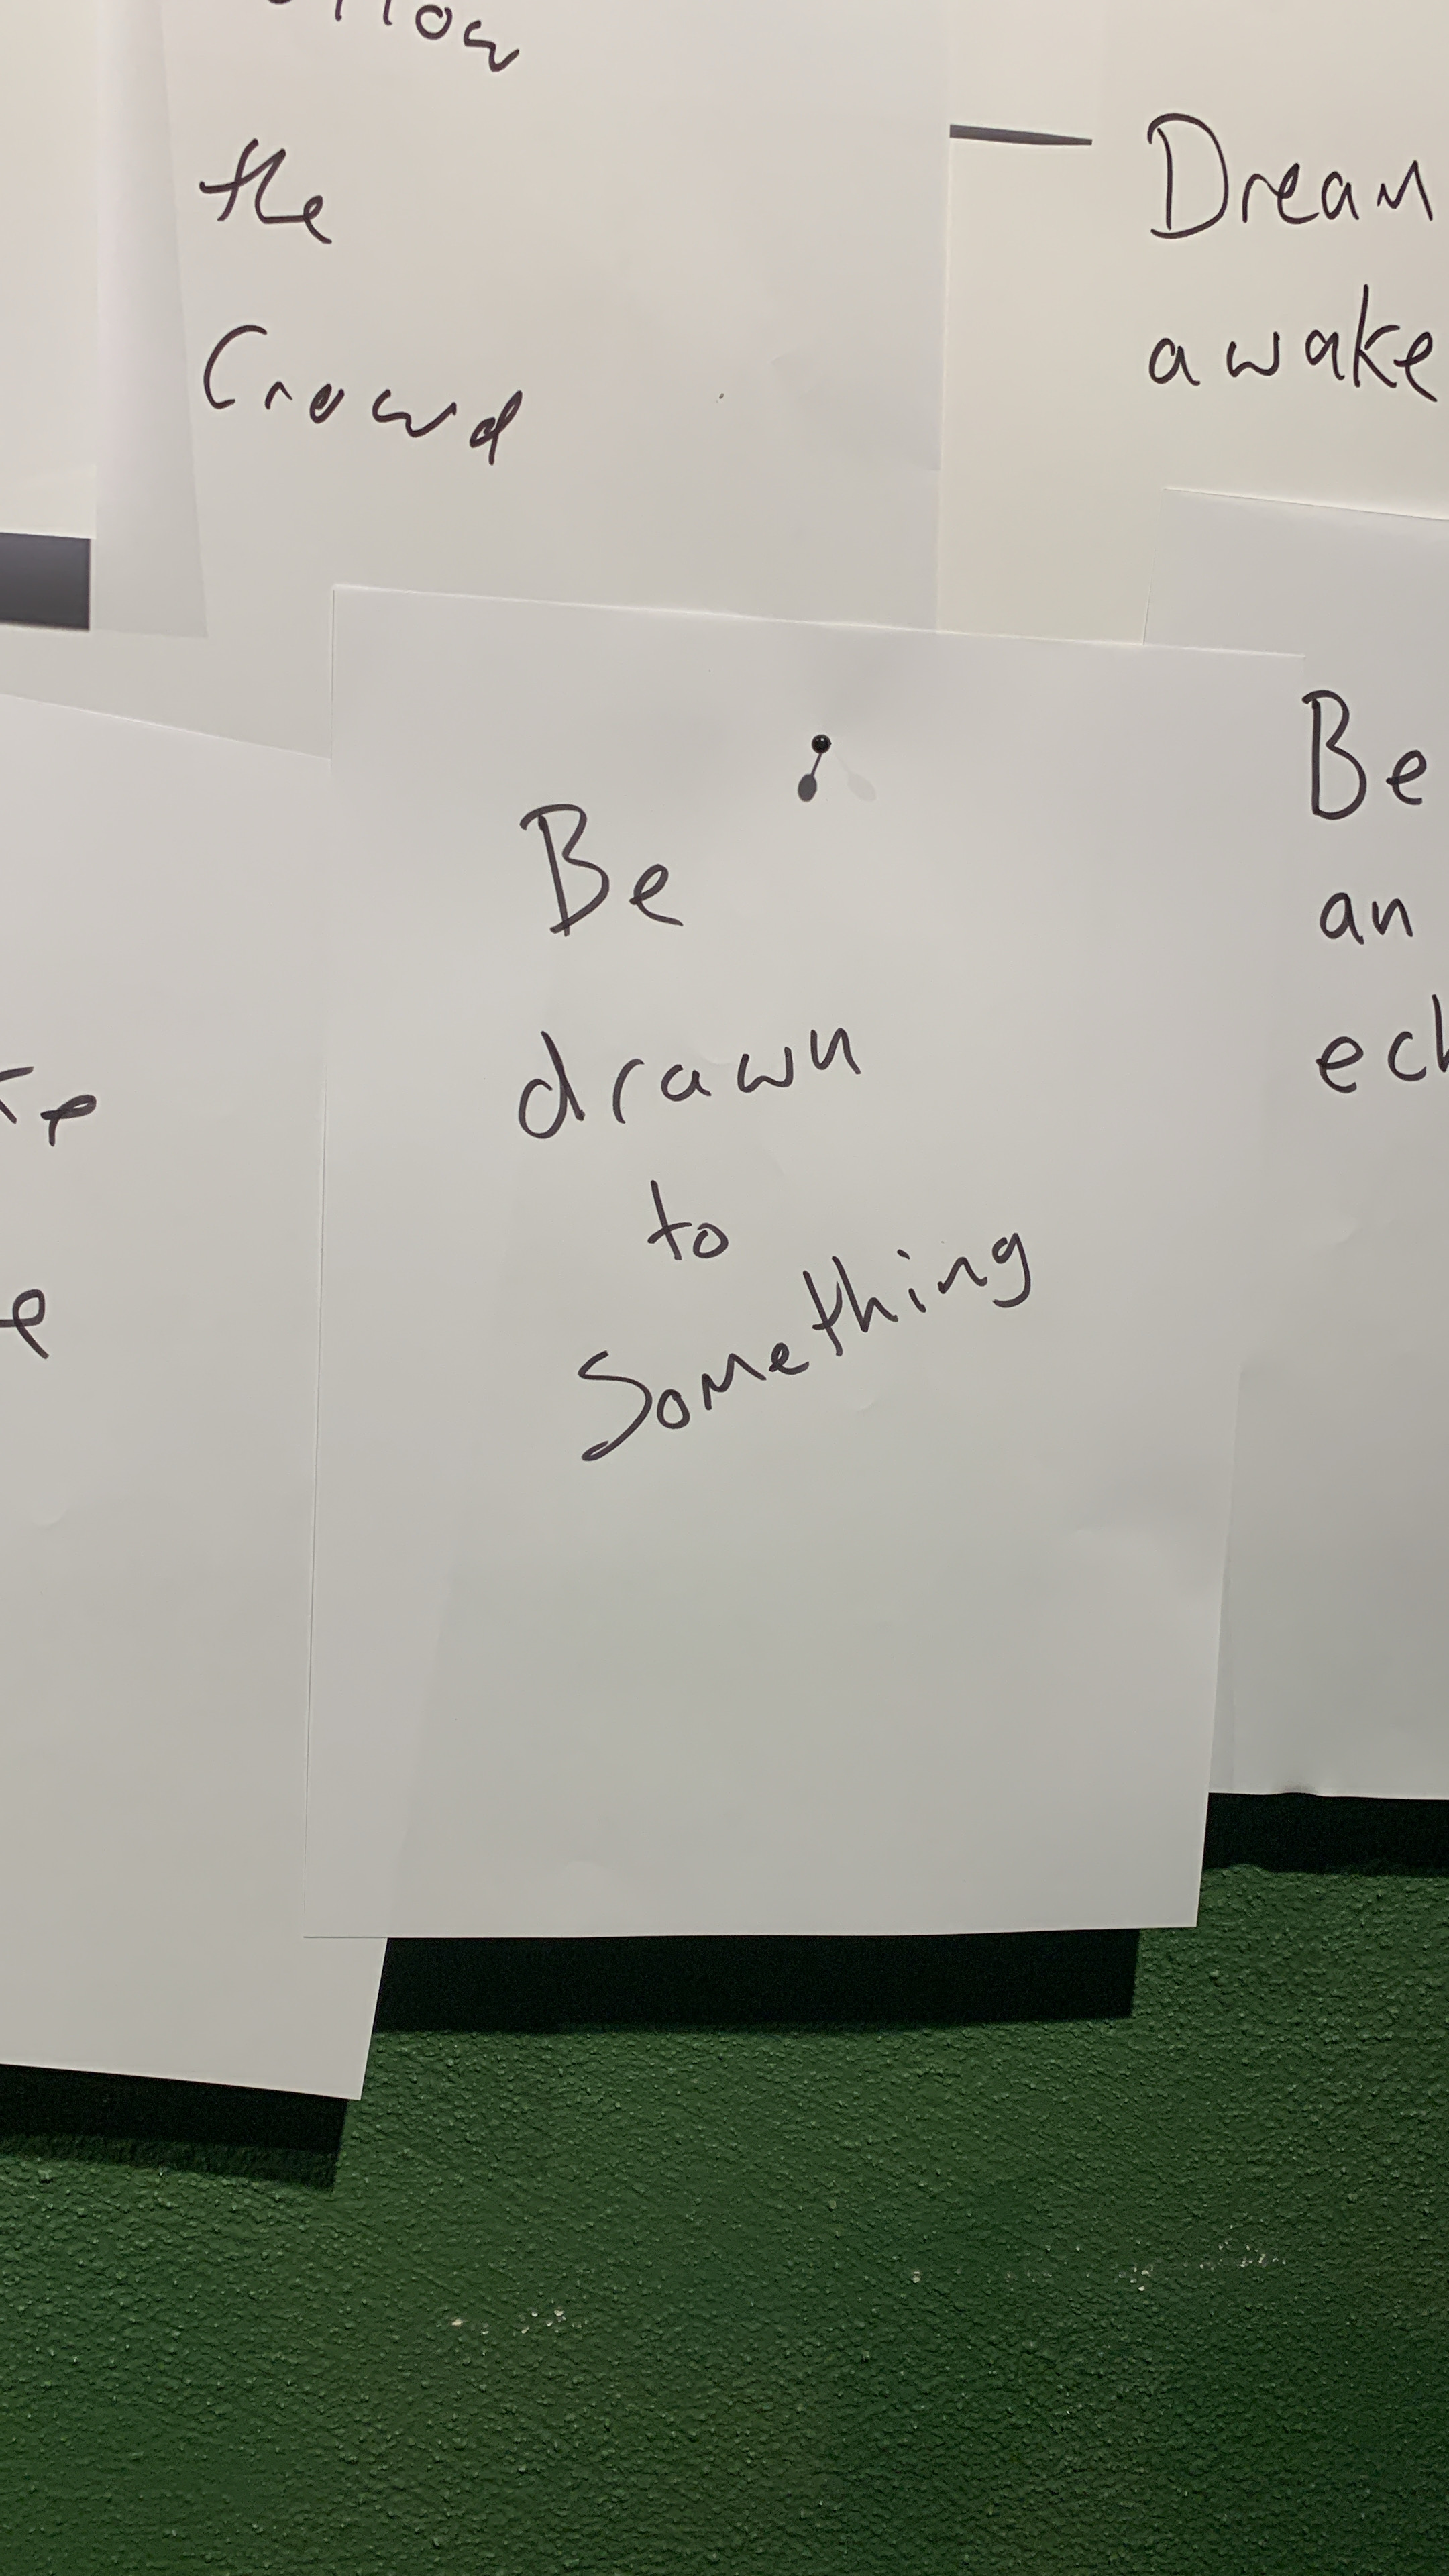 the
Crowd
Dream
awake
Be
drawn
to
Something
Be
an